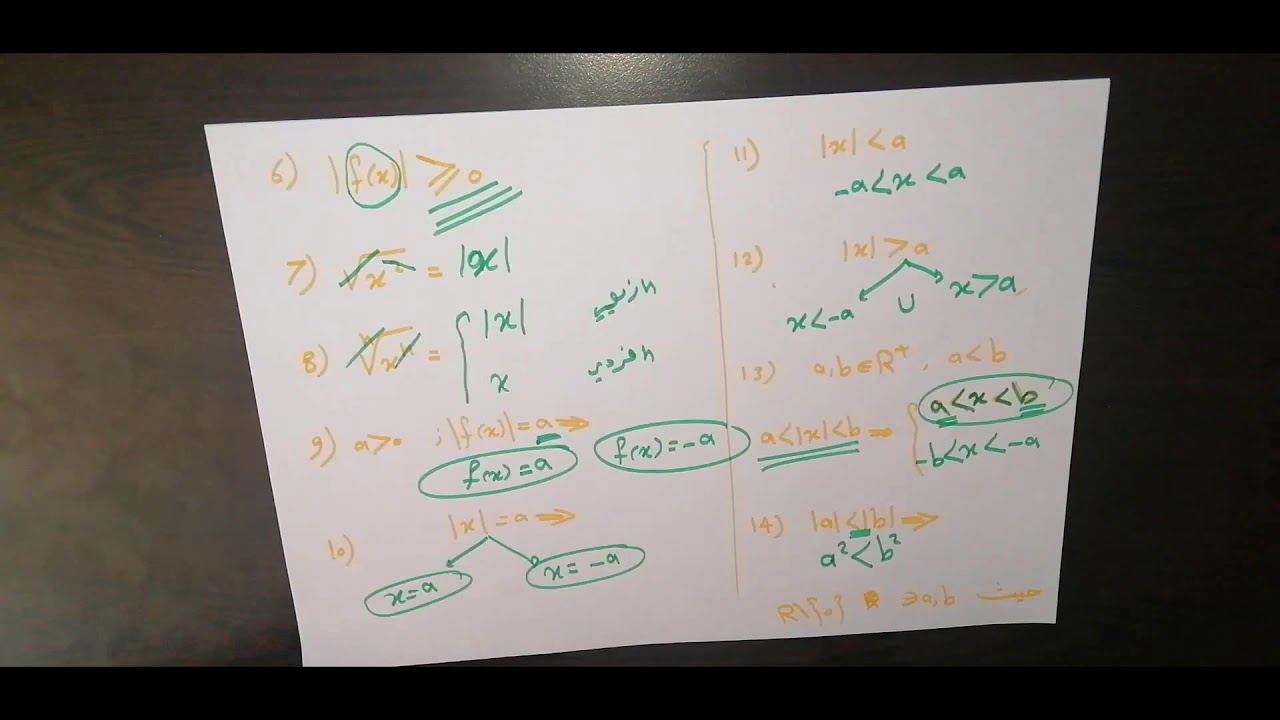 6) |f(x)| ⩾ 0
7) √x² = |x|
8) ⁿ√xⁿ = { |x| n زوجي
x n فردي
9) a>0 ; |f(x)| = a ⇒
f(x) = a f(x) = -a
10) |x| = a ⇒
x = a x = -a
11) |x| < a
-a < x < a
12) |x| > a
x < -a ∪ x > a
13) a,b ∈ R⁺ , a < b
a < |x| < b ⇒ { a < x < b
-b < x < -a
14) |a| < |b| ⇒
a² < b²
حيث a,b ∈ R\{0}